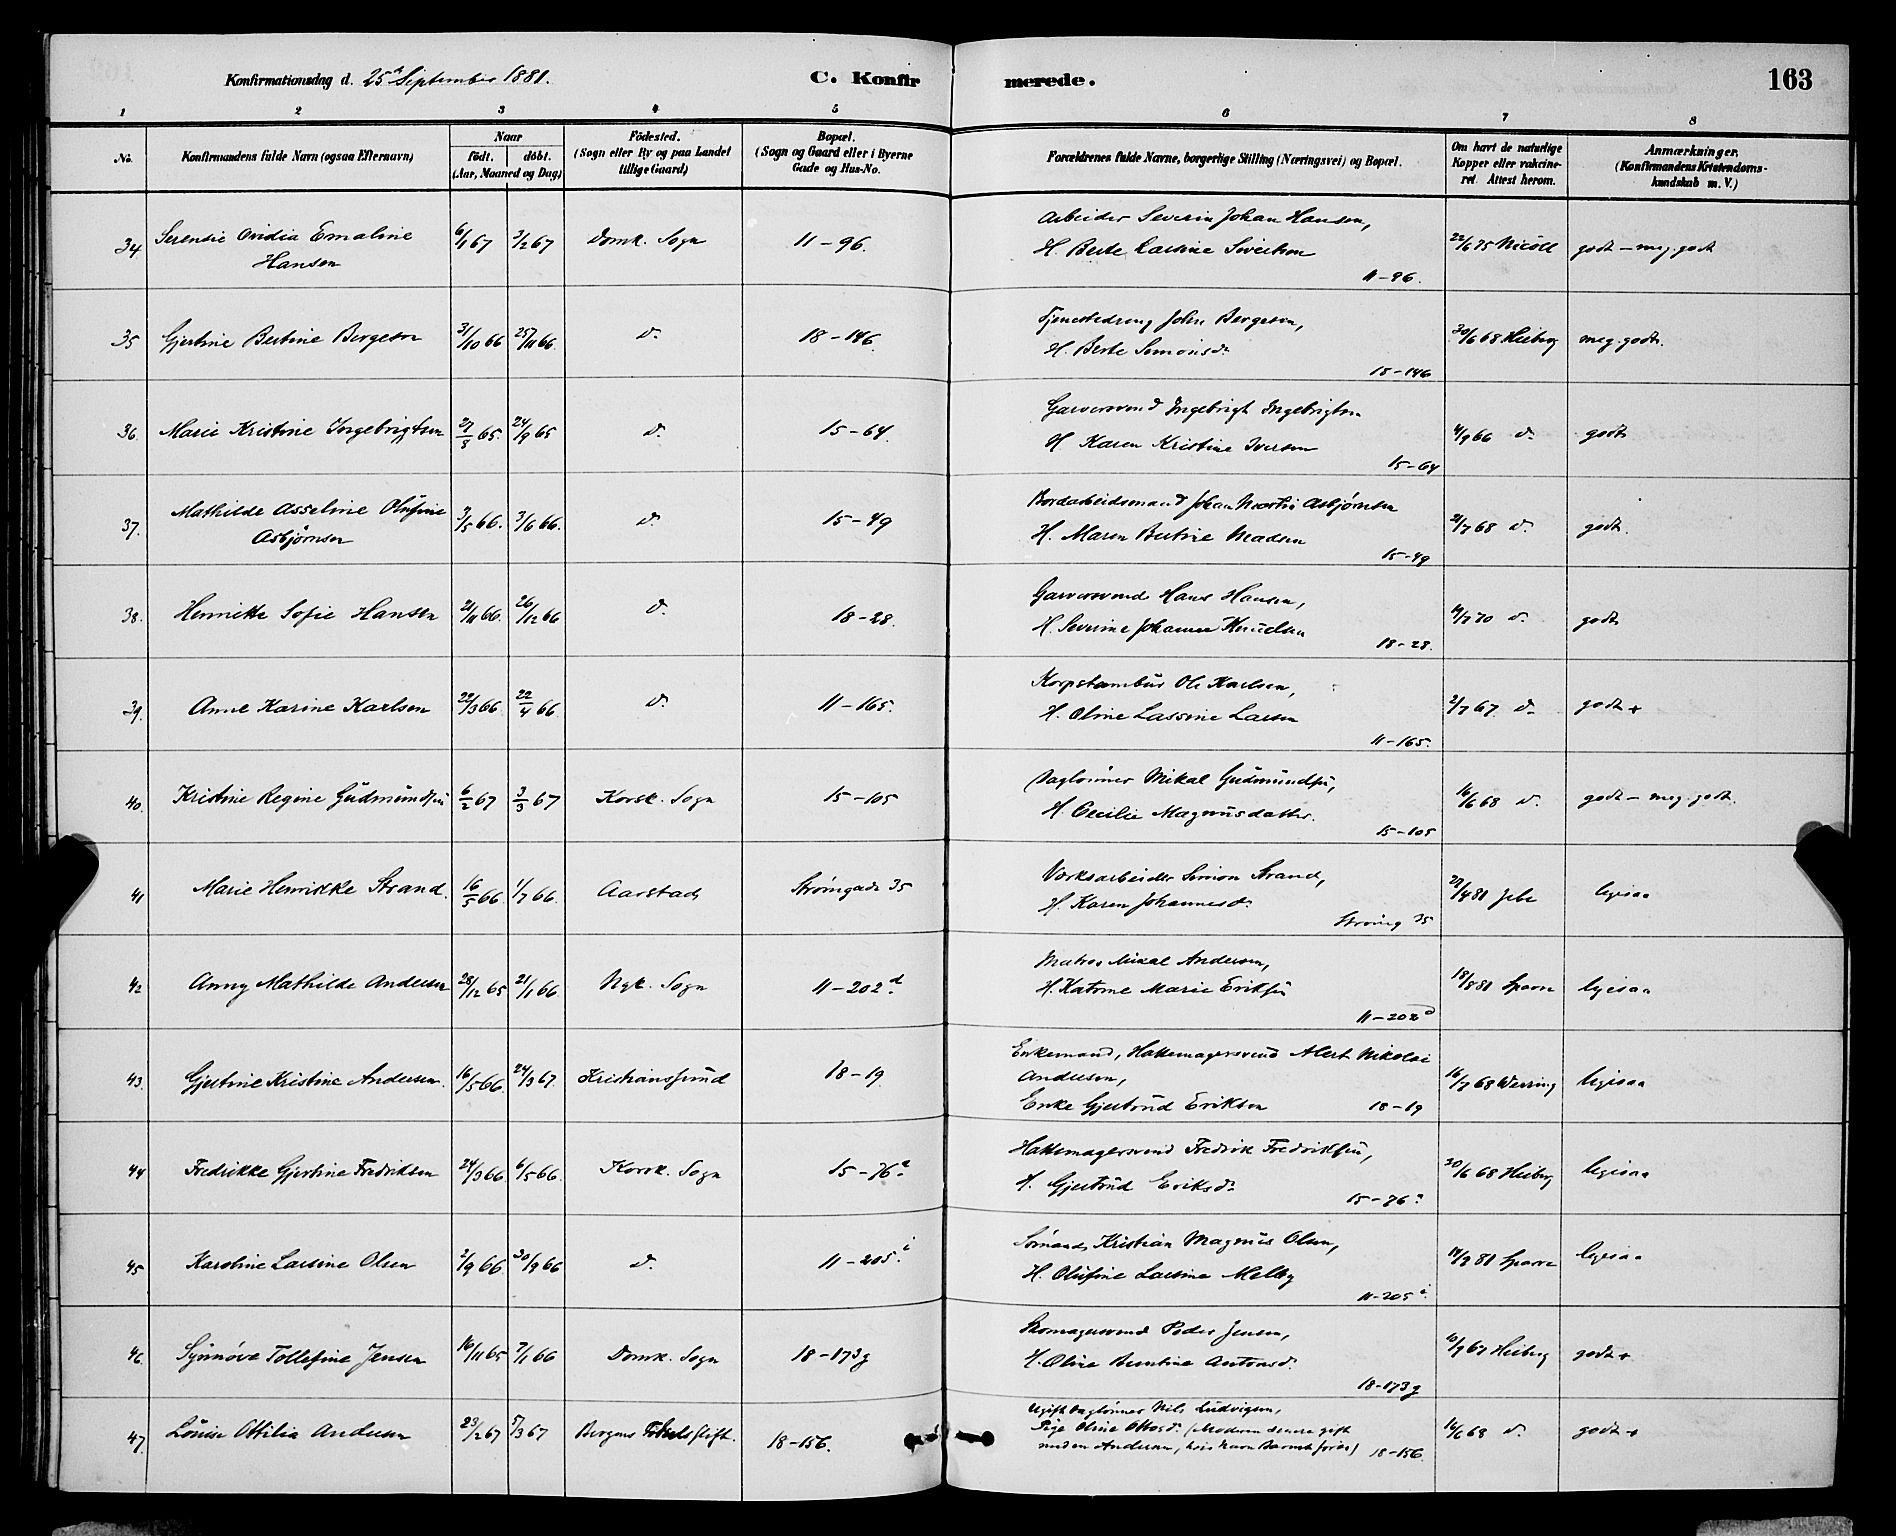 Konfirmationsdag d. 25de September 1881. C. Konfirmerede. 163
1 2 3 4 5 6 7 8
No. Konfirmandens fulde Navn (ogsaa Efternavn) Naar födt. döbt. (Aar, Maaned og Dag) Födested. (Sogn eller By og paa Landet tillige Gaard) Bopæl. (Sogn og Gaard eller i Byerne Gade og Hus-No. Forældrenes fulde Navne, borgerlige Stilling (Næringsvei) og Bopæl. Om havt de naturlige Kopper eller vakcineret. Attest herom. Anmærkninger. (Konfirmandens Kristendomskundskab m. V.)
34 Serensie Ovidia Emaline Hansen 6/1 67 3/2 67 Domk. Sogn 11-96. Arbeider Severin Johan Hansen,
H. Berte Larsine Sivertsen
11-96. 22/6 75 Nicoll godt - meg. godt
35 Gjertine Bertine Bergesen 31/10 66 25/11 66. do 18-146. Tjenestedreng John Bergesen,
H. Berte Simonsdr
15-146 30/6 68 Heiberg meg. godt.
36. Marie Kristine Ingebrigtsen 27/5 65. 24/9 65 do 15-64. Garversvend Ingebrigt Ingebrigtsen
H. Karen Kristine Iversen
15-64 4/9 66 do godt
37. Mathilde Asseline Olufine Asbjørnsen 3/5 66. 3/6 66. do 15-49 Bordarbeidsmand Johan Martin Asbjørnsen
H. Maren Bertine Madsen
15-49 21/7 68 do godt.
38. Henrikke Sofie Hansen 21/11 66. 26/12 66 do 18-28. Garversvend Hans Hansen,
H. Severine Johanne Knudsen
18-28. 4/7 70 do godt
39. Anne Karine Karlsen 22/3 66 22/4 66 do 11-165. Korpstambur Ole Karlsen,
H. Oline Lassine Larsen
11-165. 2/7 67. do godt +
40. Kristine Regine Gudmundsen 6/2 67 3/3 67 Korsk. Sogn 15-105 Daglönner Mikal Gudmundsen,
H. Cecilie Magnusdatter.
15-105 16/6 68 do godt - meg. godt.
41 Marie Henrikke Strand. 16/5 66 1/7 66. Aarstad Strömgade 35 Værksarbeider Simon Strand,
H. Karen Johannesdr
Strömg 35 29/4 81 Jebe ligesaa
42 Anny Mathilde Andersen 28/12 65 21/1 66 Nyk. Sogn 11-202 d. Matros Mikal Andersen,
H. Katrine Marie Eriksen
11-202 d 18/8 81 Sparre ligesaa
43. Gjertine Kristine Andersen. 16/5 66. 24/3 67. Kristianssund 18-19 Enkemand, Hattemagersvend Alert Nikolai
Andersen,
Enke Gjertrud Eriksen 18-19 16/7 68 Werring ligesaa
44 Fredrikke Gjertine Fredriksen 24/3 66. 6/5 66. Korsk. Sogn 15-76 a Hattemagersvend Fredrik Fredriksen,
H. Gjertrud Eriksdr
15-76 a 30/6 68 Heiberg ligesaa
45 Karoline Larsine Olsen 2/9 66 30/9 66 do 11-205 i Sömand Kristian Magnus Olsen,
H. Olufine Larsine Melby
11-205 i 14/9 81 Sparre ligesaa
46. Synnöve Tollefine Jensen 16/11 65 7/1 66 Domk. Sogn 18-173g Skomagersvend Peder Jensen,
H. Oline Berntine Antonsdr.
18-173g 10/9 67 Heiberg godt +
47. Louise Ottilia Andersen 23/1 67 5/3 67 Bergens Födselsstift. 18-156. Ugift Daglönner Nils Ludvigsen,
Pige Oline Ottosdr (Moderen senere gift
med en Andersen, hvis Navn Barnet förer) 18-156 16/6 68 do godt +